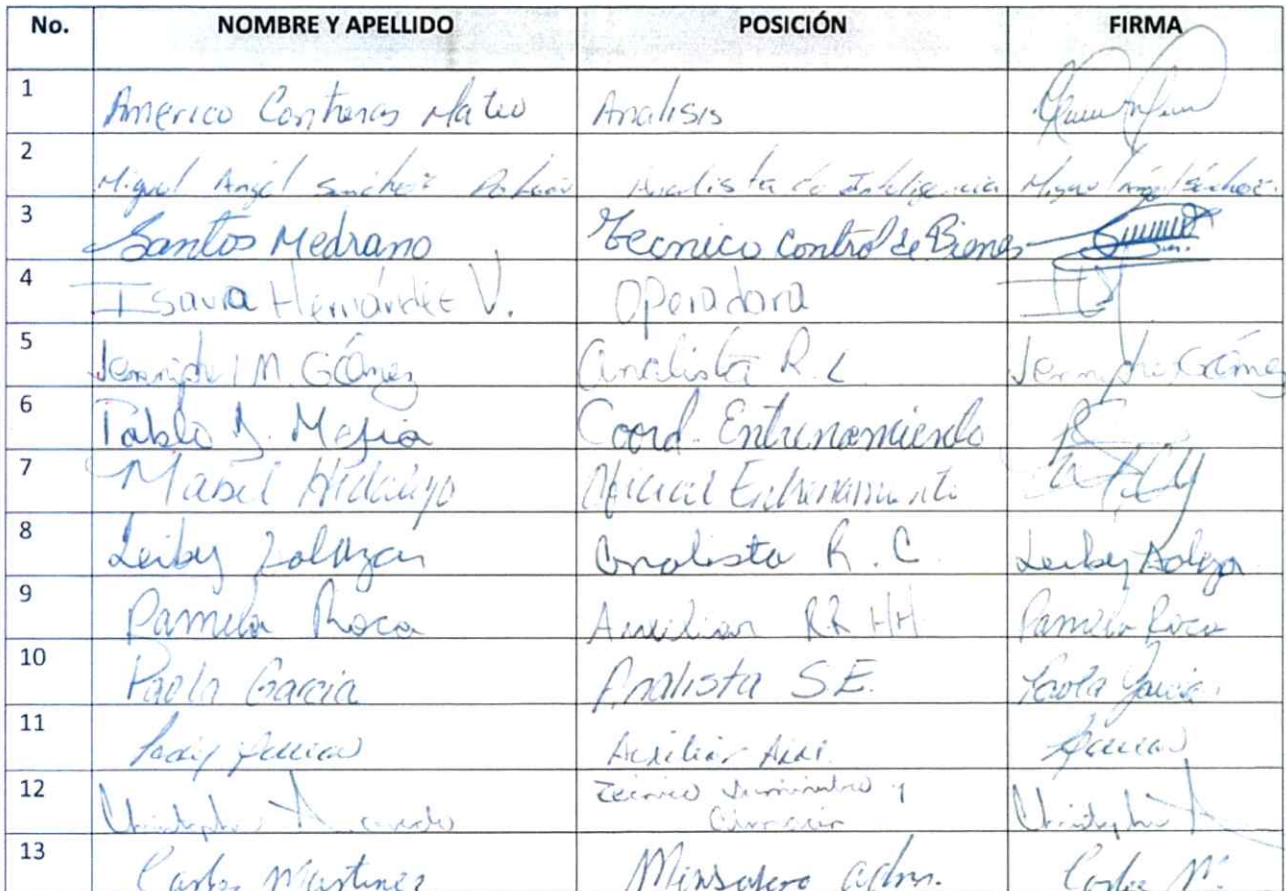 No. NOMBRE Y APELLIDO POSICIÓN FIRMA
1 Americo Contreras Mateo Analisis
2 Miguel Angel Sánchez Analista de Inteligencia Miguel Angel Sánchez
3 Santos Medrano Tecnico Control de Bienes
4 Isaura Hernández V. Operadora
5 Jennipher M. Gómez Analista R. L Jennipher Gómez
6 Pablo J. Mejia Coord. Entrenamiento
7 Mabel Hidalgo Oficial Entrenamiento
8 Leiby Salazar Analista R. C. Leiby
9 Pamela Roca Auxiliar RRHH Pamela Roca
10 Paola Garcia Analista S.E. Paola Garcia
11 Auxiliar
12 Christopher Tecnico Suministro y Christopher
13 Carlos Martinez Mensajero adm. Carlos M.